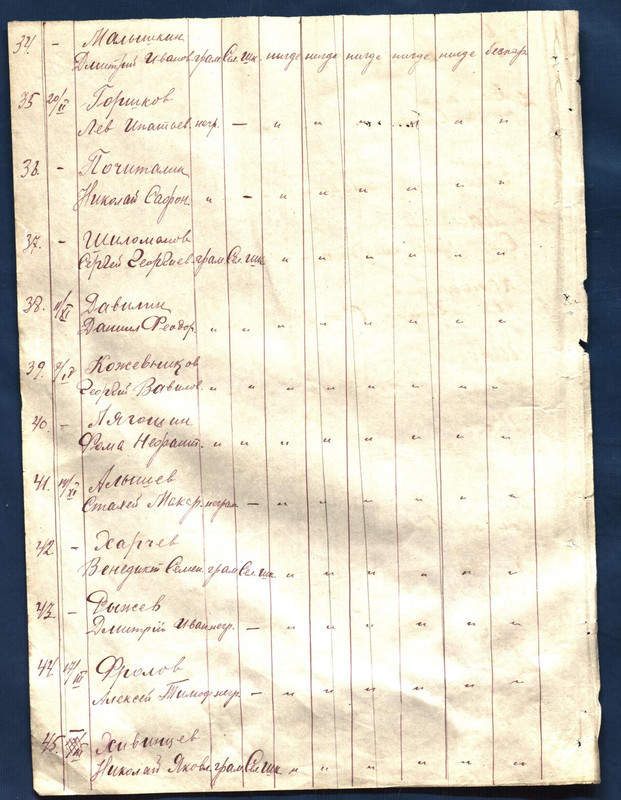 34. - Малышкин
Дмитрий Иванов. грам. Сел. шк. нигде нигде нигде нигде нигде беспар.
35 20/II Горшков
Лев Ипатьев. негр. — " " " " "
36. - Почиталин
Николай Сафрон. " - " " " " " "
37. -
Сергей Георгиев. грам. Сел. шк. " " " " " "
38. 11/XI Давилин
Даниил Феодор. " " " " " " " "
39. Кожевников
Георгий Вавилов. " " " " " " " "
40. - Лягошин
Фома " " " " " " " "
41. Алышев
Макар. неграм — " " " " " "
42 - Харчев
Венедикт Семен. грам. Сел. шк. " " " " " "
43 - Рыжев
Дмитрий Иван. негр. — " " " " " "
44. 17/III Фролов
Алексей Тимоф. негр. — " " " " " "
45. Хивинцев
Николай Яковл. грам. Сел. шк. " " " " " "